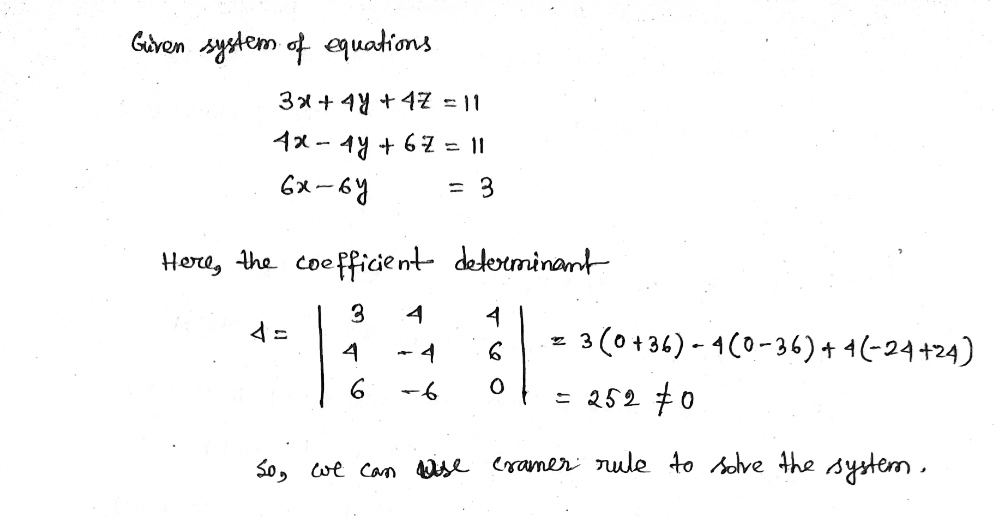 Given system of equations
3x + 4y + 4z = 11
4x - 4y + 6z = 11
6x - 6y = 3
Here, the coefficient determinant
Δ = | 3 4 4 | = 3(0+36) - 4(0-36) + 4(-24+24)
| 4 -4 6 |
| 6 -6 0 | = 252 ≠ 0
So, we can use cramer rule to solve the system.